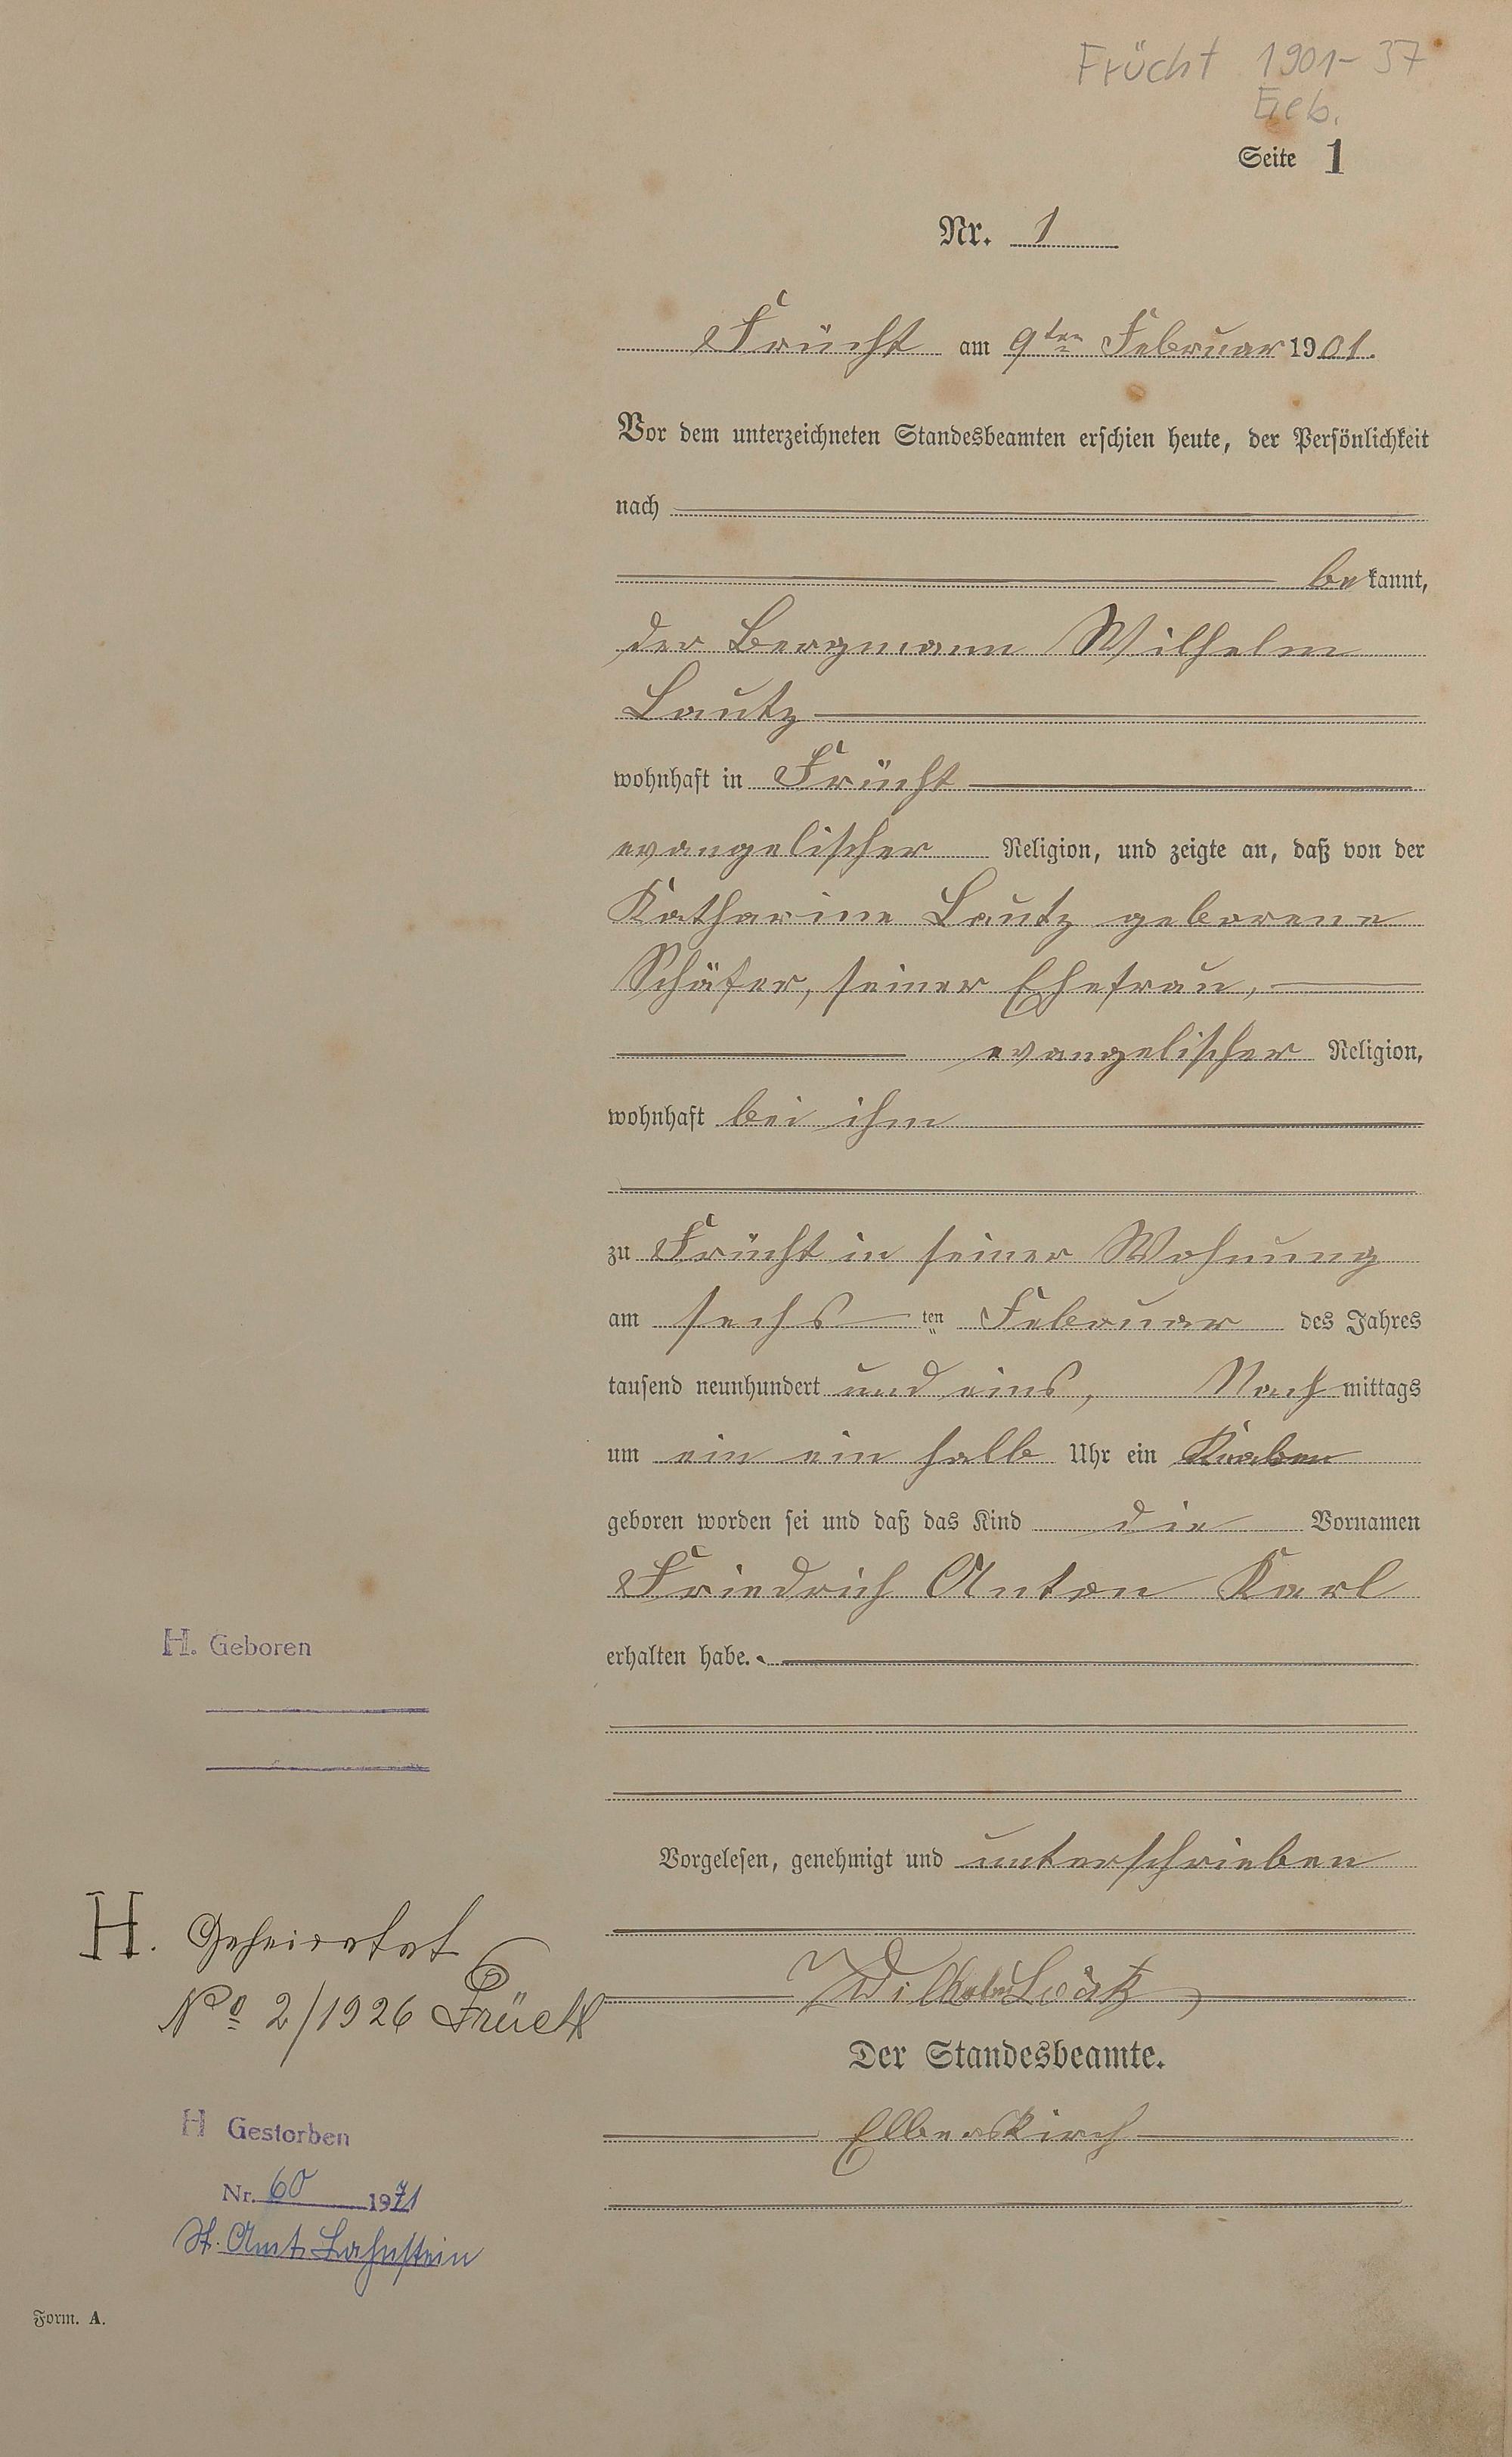 Frücht 1901-37
Geb.
Seite 1
Nr. 1
Frücht am 9ten Februar 1901.
Vor dem unterzeichneten Standesbeamten erschien heute, der Persönlichkeit
nach
bekannt,
der Bergmann Wilhelm
Lautz
wohnhaft in Frücht
evangelischer Religion, und zeigte an, daß von der
Katharine Lautz geborene
Schäfer, seiner Ehefrau,
evangelischer Religion,
wohnhaft bei ihm
zu Frücht in seiner Wohnung
am sechs ten Februar des Jahres
tausend neunhundert und eins, Nachmittags
um ein ein halb Uhr ein Knaben
geboren worden sei und daß das Kind die Vornamen
Friedrich Anton Karl
erhalten habe.
H. Geboren
Vorgelesen, genehmigt und unterschrieben
H. Geheiratet
No 2/1926 Frücht
Wilhelm Lautz
Der Standesbeamte.
Elberskirch
H Gestorben
Nr. 60 1971
St. Amt. Lahnstein
Form. A.